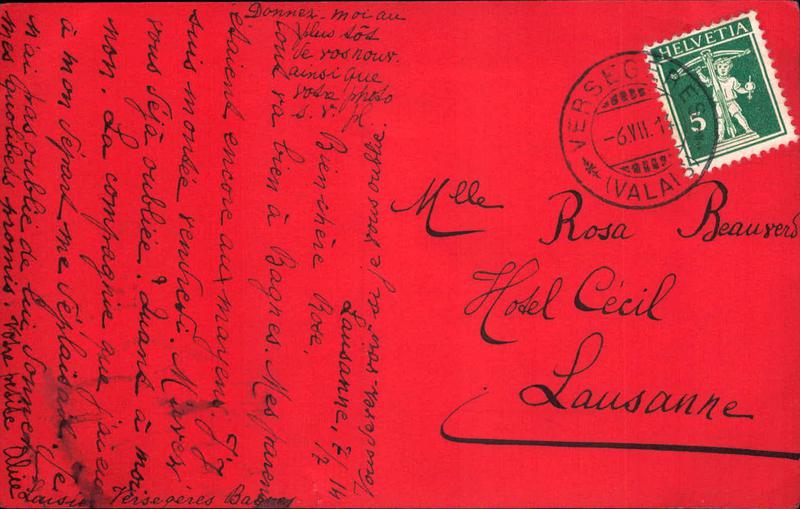 Donnez-moi au
plus tôt
de vos nouv.
ainsi que
votre photo
s. v. pl.
Lausanne, 7/7 14
Bien chère Rose,
Tout va bien à Bagnes. Mes parents
étaient encore au mayens. J'y
suis montée vendredi. M'avez
vous déjà oubliée? Quant à moi
non. La compagnie que j'ai eu
à mon départ me déplaisait. Je
n'ai pas oublié de lui donner
mes quolibets promis. Votre petite Alice
Versegères Bagnes
HELVETIA
5
VERSEGÈRES
-6.VII.1
(VALAIS)
Mlle Rosa Beauverd
Hôtel Cécil
Lausanne